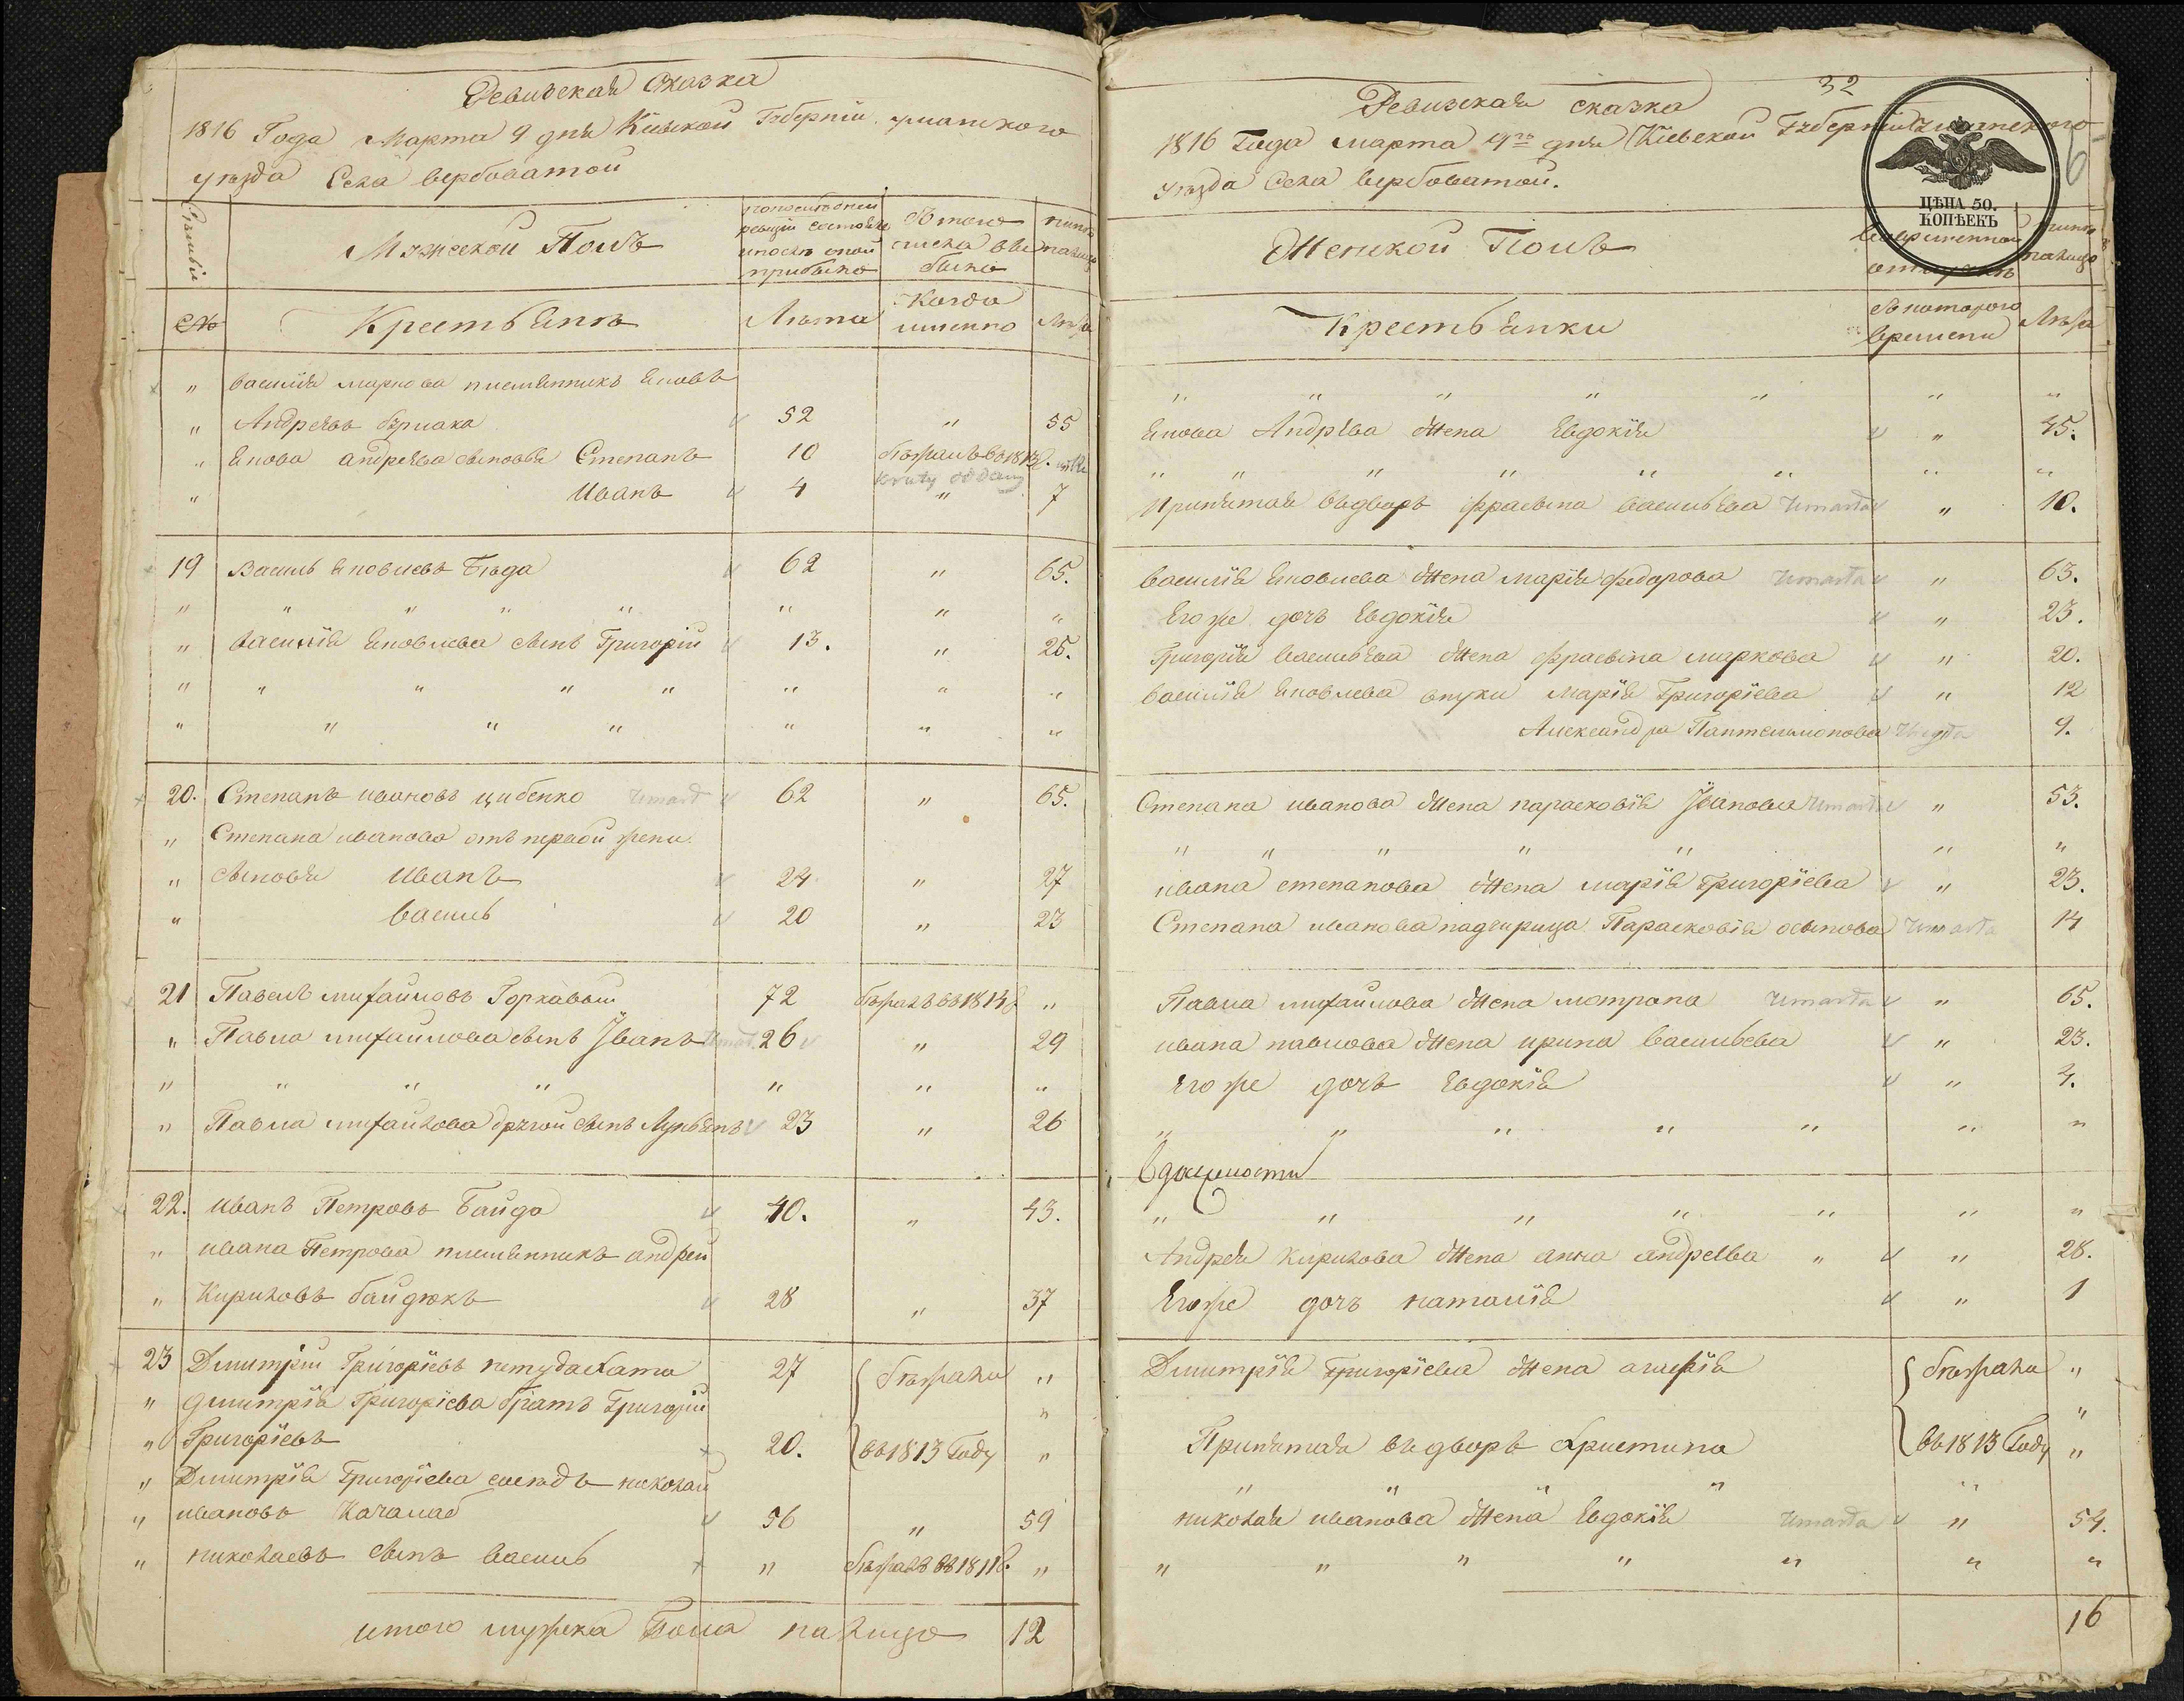 Ревизская сказка
1816 Года Марта 9 дня Кіевской Губерніи уманского
уѣзда Села вербоватой
Семьи
Мужеской Полъ
по последней
ревизіи состояло
и после оной
прибыло
Изъ того
числа вы
было
ныне
налицо
№
Крестьянъ
Лѣта
Когда
именно
Лѣта
" василія маркова племянникъ Яковъ
" Андреевъ бурлака 52 " 55
" Якова андреева сыновья Степанъ 10 бѣжалъ въ 1813
" Иванъ 4 " 7
19 Василь Яковлевъ Бѣда 62 " 65.
" " " " " " " "
" василія Яковлева сынъ Григорій 13. " 25.
" " " " " " " "
" " " " " " "
20. Степанъ ивановъ цибенко umarł 62 " 65.
" Степана иванова отъ первой жены
" сыновья Иванъ 24 " 27
" василь 20 " 23
21 Павелъ михайловъ Горкавый 72 бѣжалъ въ 1813 "
" Павла михайлова сынъ Іванъ 26 " 29
" " " " " " "
" Павла михайлова другой сынъ Лукьянъ 23 " 26
22. иванъ Петровъ Байда 40. " 43.
" ивана Петрова племянникъ андрей
" Кириловъ байдюкъ 28 " 37
23 Дмитрій Григоріевъ 27 бѣжали "
" дмитрія Григоріева братъ Григорій "
" Григоріевъ 20. въ 1813 Году "
" Дмитрія Григоріева соседъ николай
" ивановъ Качалаб 56 " 59
" николаевъ сынъ василь " бѣжалъ въ 1811. "
итого мужеска Пола налицо 12
32
Ревизская сказка
1816 Года марта 9го дня Кіевской Губерніи уманского
уѣзда Села вербоватой.
ЦѢНА 50.
КОПѢЕКЪ
Женской Полъ
временной
отлучкѣ
ныне
налицо
Крестьянки
Съ котораго
времени
Лѣта
" " " " " " "
Якова Андреева жена Евдокія " 45.
" " " " " " " "
Принятая въ дворъ фросина василева umarła " 10.
василія Яковлева жена марія федорова umarła " 63.
Его же дочь Евдокія " 23.
Григорія василева жена фросина маркова " 20.
василія Яковлева внуки марія Григоріева " 12
Александра Пантелимонова 9.
Степана иванова жена парасковія Іванова umarła " 53.
" " " " " " "
ивана степанова жена марія Григоріева " 23.
Степана иванова падчирица Парасковія осипова umarła 14
Павла михайлова жена мотрона umarła " 65.
ивана павлова жена ирина васильева " 23.
Его же дочь Евдокія " 4.
" " " " " " "
" " " " " " "
Андрея Кирилова жена анна андреева " " 28.
Его же дочь наталія " 1
Дмитрія Григоріева жена бѣжали "
"
Принятая въ дворъ христина въ 1813 Году "
" " " " "
николая иванова жена Евдокія umarła " 54.
" " " " " " "
16